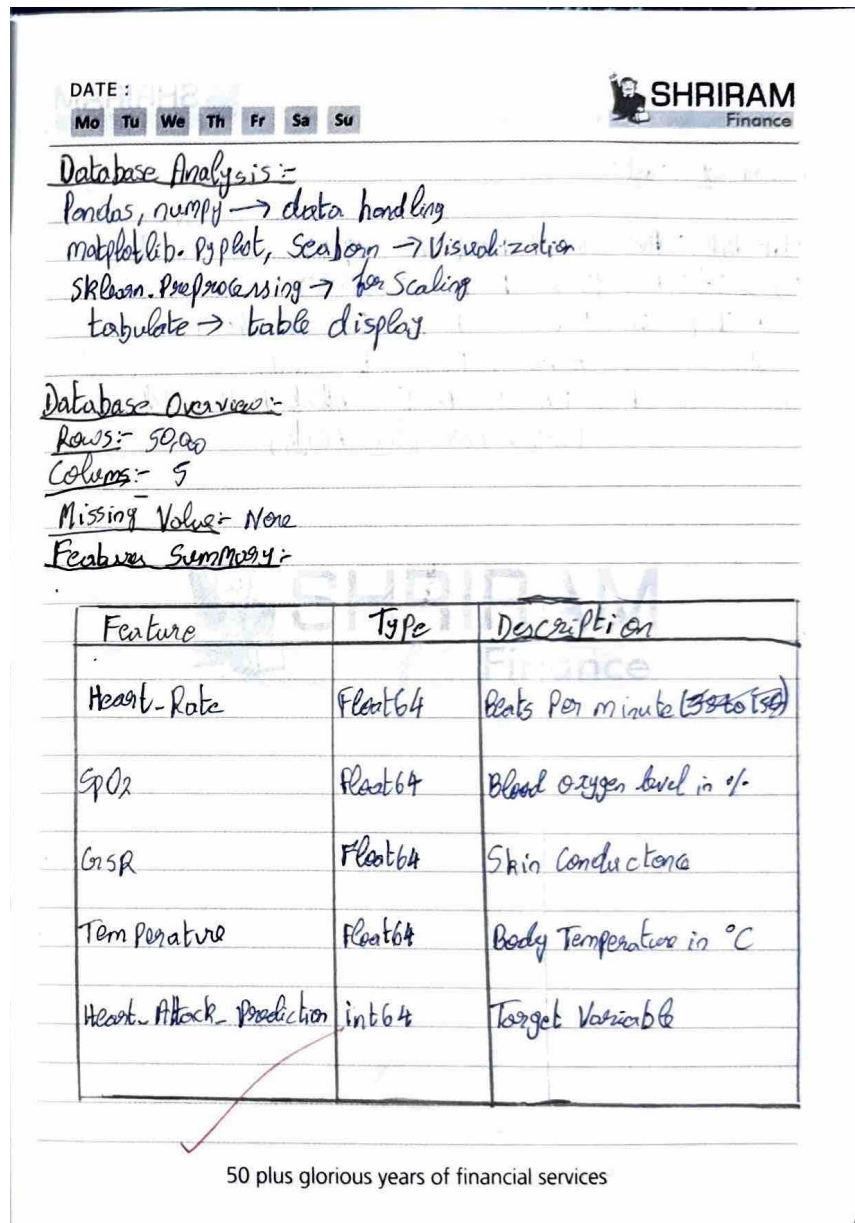 DATE :
SHRIRAM
Finance
Mo Tu We Th Fr Sa Su
Database Analysis :-
Pandas, numpy → data handling
matplotlib. Pyplot, Seaborn → Visualization
Sklearn. Preprocessing → for Scaling
tabulate → table display
Database Overview :-
Rows :- 50,000
Colums :- 5
Missing Value :- None
Features Summary :-
Feature Type Description
Heart_Rate Float64 Beats Per minute
SpO2 Float64 Blood oxygen level in %
GSR Float64 Skin Conductance
Temperature Float64 Body Temperature in °C
Heart_Attack_Prediction int64 Target Variable
50 plus glorious years of financial services